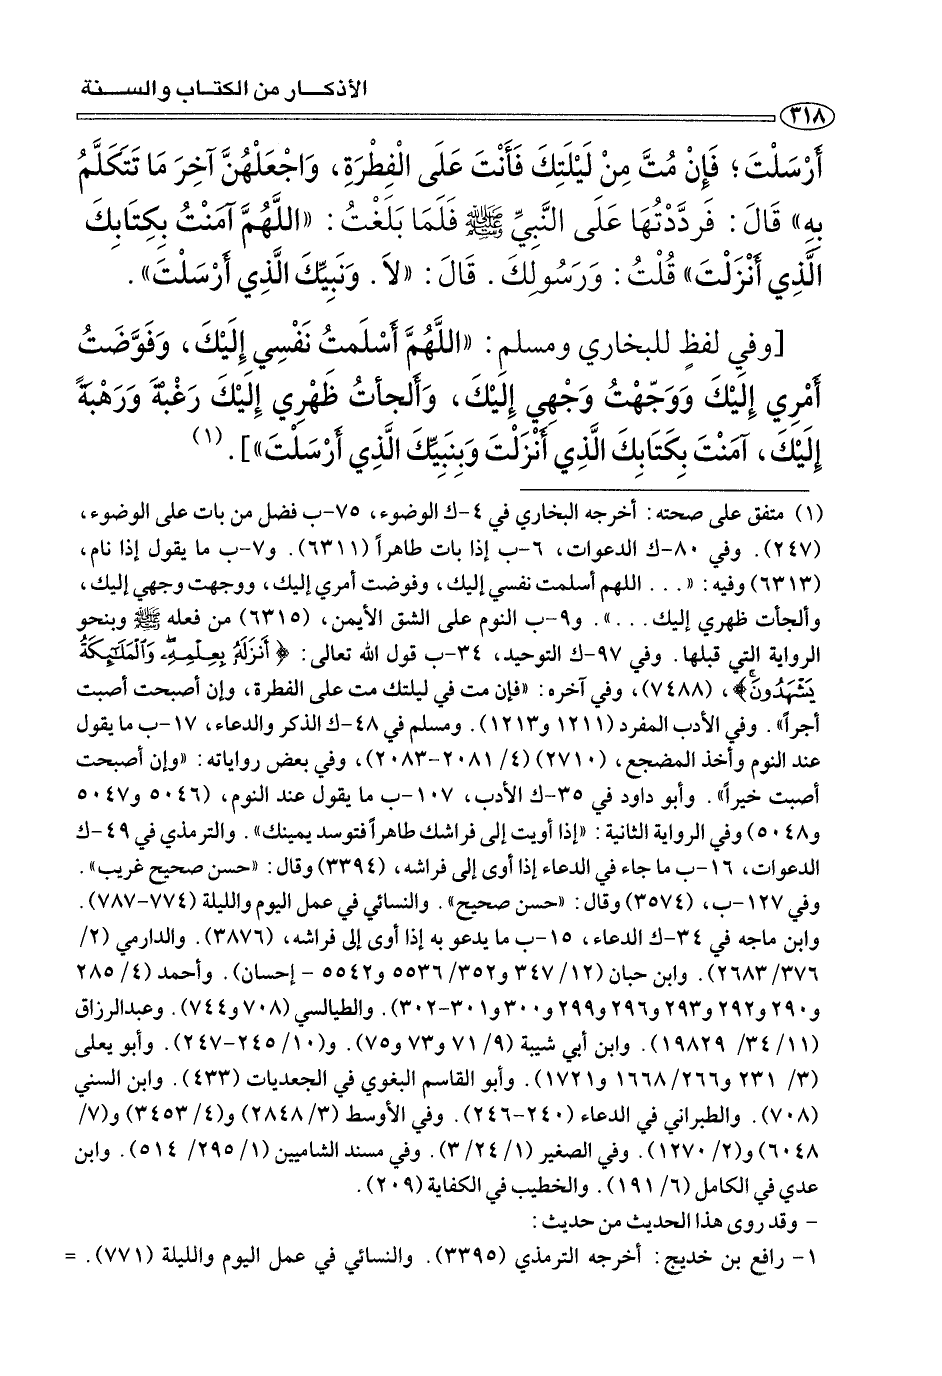 الأذكـــار من الكتـاب والســـنة
٣١٨
أَرْسَلْتَ؛ فَإِنْ مُتَّ مِنْ لَيْلَتِكَ فَأَنْتَ عَلَى الْفِطْرَةِ، وَاجْعَلْهُنَّ آخِرَ مَا تَتَكَلَّمُ
بِهِ» قَالَ: فَرَدَّدْتُهَا عَلَى النَّبِيِّ ﷺ فَلَمَا بَلَغْتُ: «اللَّهُمَّ آمَنْتُ بِكِتَابِكَ
الَّذِي أَنْزَلْتَ» قُلْتُ: وَرَسُولِكَ. قَالَ: «لاَ. وَنَبِيِّكَ الَّذِي أَرْسَلْتَ».
[وفي لفظٍ للبخاري ومسلم: «اللَّهُمَّ أَسْلَمتُ نَفْسِي إِلَيْكَ، وَفَوَّضَتُ
أَمْرِي إِلَيْكَ وَوَجّهْتُ وَجْهِي إِلَيْكَ، وَأَلجأتُ ظَهْرِي إِلَيْكَ رَغْبةً وَرَهْبَةً
إِلَيْكَ، آمَنْتَ بِكَتَابِكَ الَّذِي أَنْزَلْتَ وَبِنَبِيِّكَ الَّذِي أَرْسَلْتَ»]. (١)
(١) متفق على صحته: أخرجه البخاري في ٤-ك الوضوء، ٧٥-ب فضل من بات على الوضوء،
(٢٤٧). وفي ٨٠-ك الدعوات، ٦-ب إذا بات طاهراً (٦٣١١). و٧-ب ما يقول إذا نام،
(٦٣١٣) وفيه: «... اللهم أسلمت نفسي إليك، وفوضت أمري إليك، ووجهت وجهي إليك،
وألجأت ظهري إليك...». و٩-ب النوم على الشق الأيمن، (٦٣١٥) من فعله ﷺ وبنحو
الرواية التي قبلها. وفي ٩٧-ك التوحيد، ٣٤-ب قول الله تعالى: ﴿أَنزَلَهُ بِعِلْمِهِۦ وَٱلْمَلَٰٓئِكَةُ
يَشْهَدُونَ﴾، (٧٤٨٨)، وفي آخره: «فإن مت في ليلتك مت على الفطرة، وإن أصبحت أصبت
أجراً». وفي الأدب المفرد (١٢١١ و١٢١٣). ومسلم في ٤٨-ك الذكر والدعاء، ١٧-ب ما يقول
عند النوم وأخذ المضجع، (٢٧١٠) (٤/ ٢٠٨١-٢٠٨٣)، وفي بعض رواياته: «وإن أصبحت
أصبت خيراً». وأبو داود في ٣٥-ك الأدب، ١٠٧-ب ما يقول عند النوم، (٥٠٤٦ و٥٠٤٧
و٥٠٤٨) وفي الرواية الثانية: «إذا أويت إلى فراشك طاهراً فتوسد يمينك». والترمذي في ٤٩-ك
الدعوات، ١٦-ب ما جاء في الدعاء إذا أوى إلى فراشه، (٣٣٩٤) وقال: «حسن صحيح غريب».
وفي ١٢٧-ب، (٣٥٧٤) وقال: «حسن صحيح». والنسائي في عمل اليوم والليلة (٧٧٤-٧٨٧).
وابن ماجه في ٣٤-ك الدعاء، ١٥-ب ما يدعو به إذا أوى إلى فراشه، (٣٨٧٦). والدارمي (٢/
٣٧٦/ ٢٦٨٣). وابن حبان (١٢/ ٣٤٧ و٣٥٢/ ٥٥٣٦ و٥٥٤٢ - إحسان). وأحمد (٤/ ٢٨٥
و٢٩٠ و٢٩٢ و٢٩٣ و٢٩٦ و٢٩٩ و٣٠٠ و٣٠١-٣٠٢). والطيالسي (٧٠٨ و٧٤٤). وعبدالرزاق
(١١/ ٣٤/ ١٩٨٢٩). وابن أبي شيبة (٩/ ٧١ و٧٣ و٧٥). و(١٠/ ٢٤٥-٢٤٧). وأبو يعلى
(٣/ ٢٣١ و٢٦٦/ ١٦٦٨ و١٧٢١). وأبو القاسم البغوي في الجعديات (٤٣٣). وابن السني
(٧٠٨). والطبراني في الدعاء (٢٤٠-٢٤٦). وفي الأوسط (٣/ ٢٨٤٨) و(٤/ ٣٤٥٣) و(٧/
٦٠٤٨) و(٢/ ١٢٧٠). وفي الصغير (١/ ٢٤/ ٣). وفي مسند الشاميين (١/ ٢٩٥/ ٥١٤). وابن
عدي في الكامل (٦/ ١٩١). والخطيب في الكفاية (٢٠٩).
- وقد روى هذا الحديث من حديث:
١- رافع بن خديج: أخرجه الترمذي (٣٣٩٥). والنسائي في عمل اليوم والليلة (٧٧١). =